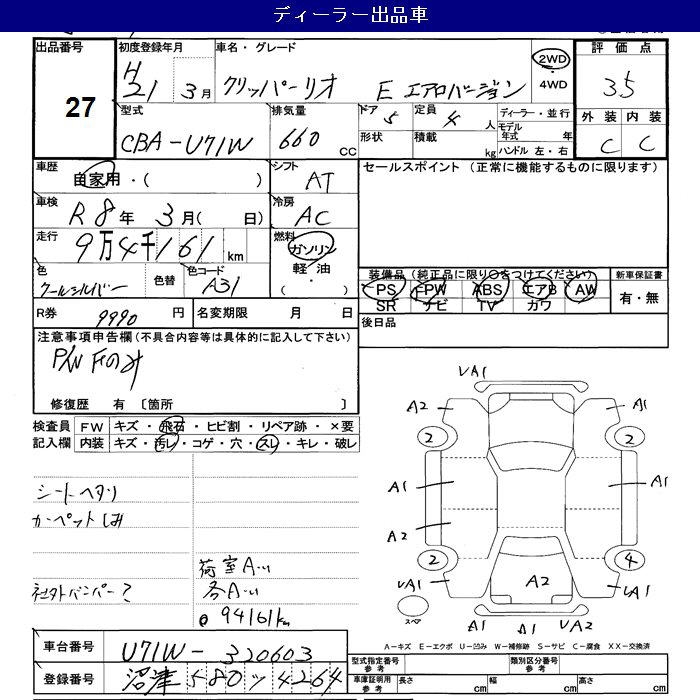 ディーラー出品車
出品番号 初度登録年月 車名・グレード 2WD 評価点
27
H21 3月 クリッパーリオ E エアロバージョン 4WD 3.5
型式 排気量 ドア 5 定員 4人 ディーラー・並行 外装 内装
CBA-U71W 660cc 形状 積載 kg モデル年式 年 C C
ハンドル 左・右
車歴 自家用・( ) シフト AT セールスポイント (正常に機能するものに限ります)
車検 R8年 3月( 日) 冷房 AC
走行 9万4千161km 燃料 ガソリン
軽油
( ・ )
色 クールシルバー 色替 色コード A31
装備品 (純正品に限り○をつけてください) 新車保証書
PS PW ABS エアB AW 有・無
SR ナビ TV カワ
R券 9990円 名変期限 月 日 後日品
注意事項申告欄(不具合内容等は具体的に記入して下さい)
P/W Fのみ
修復歴 有 〔箇所 〕
検査員 FW キズ・飛石・ヒビ割・リペア跡・×要
記入欄 内装 キズ・汚レ・コゲ・穴・スレ・キレ・破レ
シートヘタリ
カーペットしみ
荷室A
社外バンパー 各A
94161km
VA1
A2 A1
2 2
A1 A1
A2
2 4
VA1 A2 UA1
スペア
A1 A1 VA2
A-キズ E-エクボ U-凹み W-補修跡 S-サビ C-腐食 XX-交換済
車台番号 U71W-320603
登録番号 沼津 580 ツ 4264
型式指定番号 参考 類別区分番号 参考
車庫証明用 参考 長さ cm 幅 cm 高さ cm